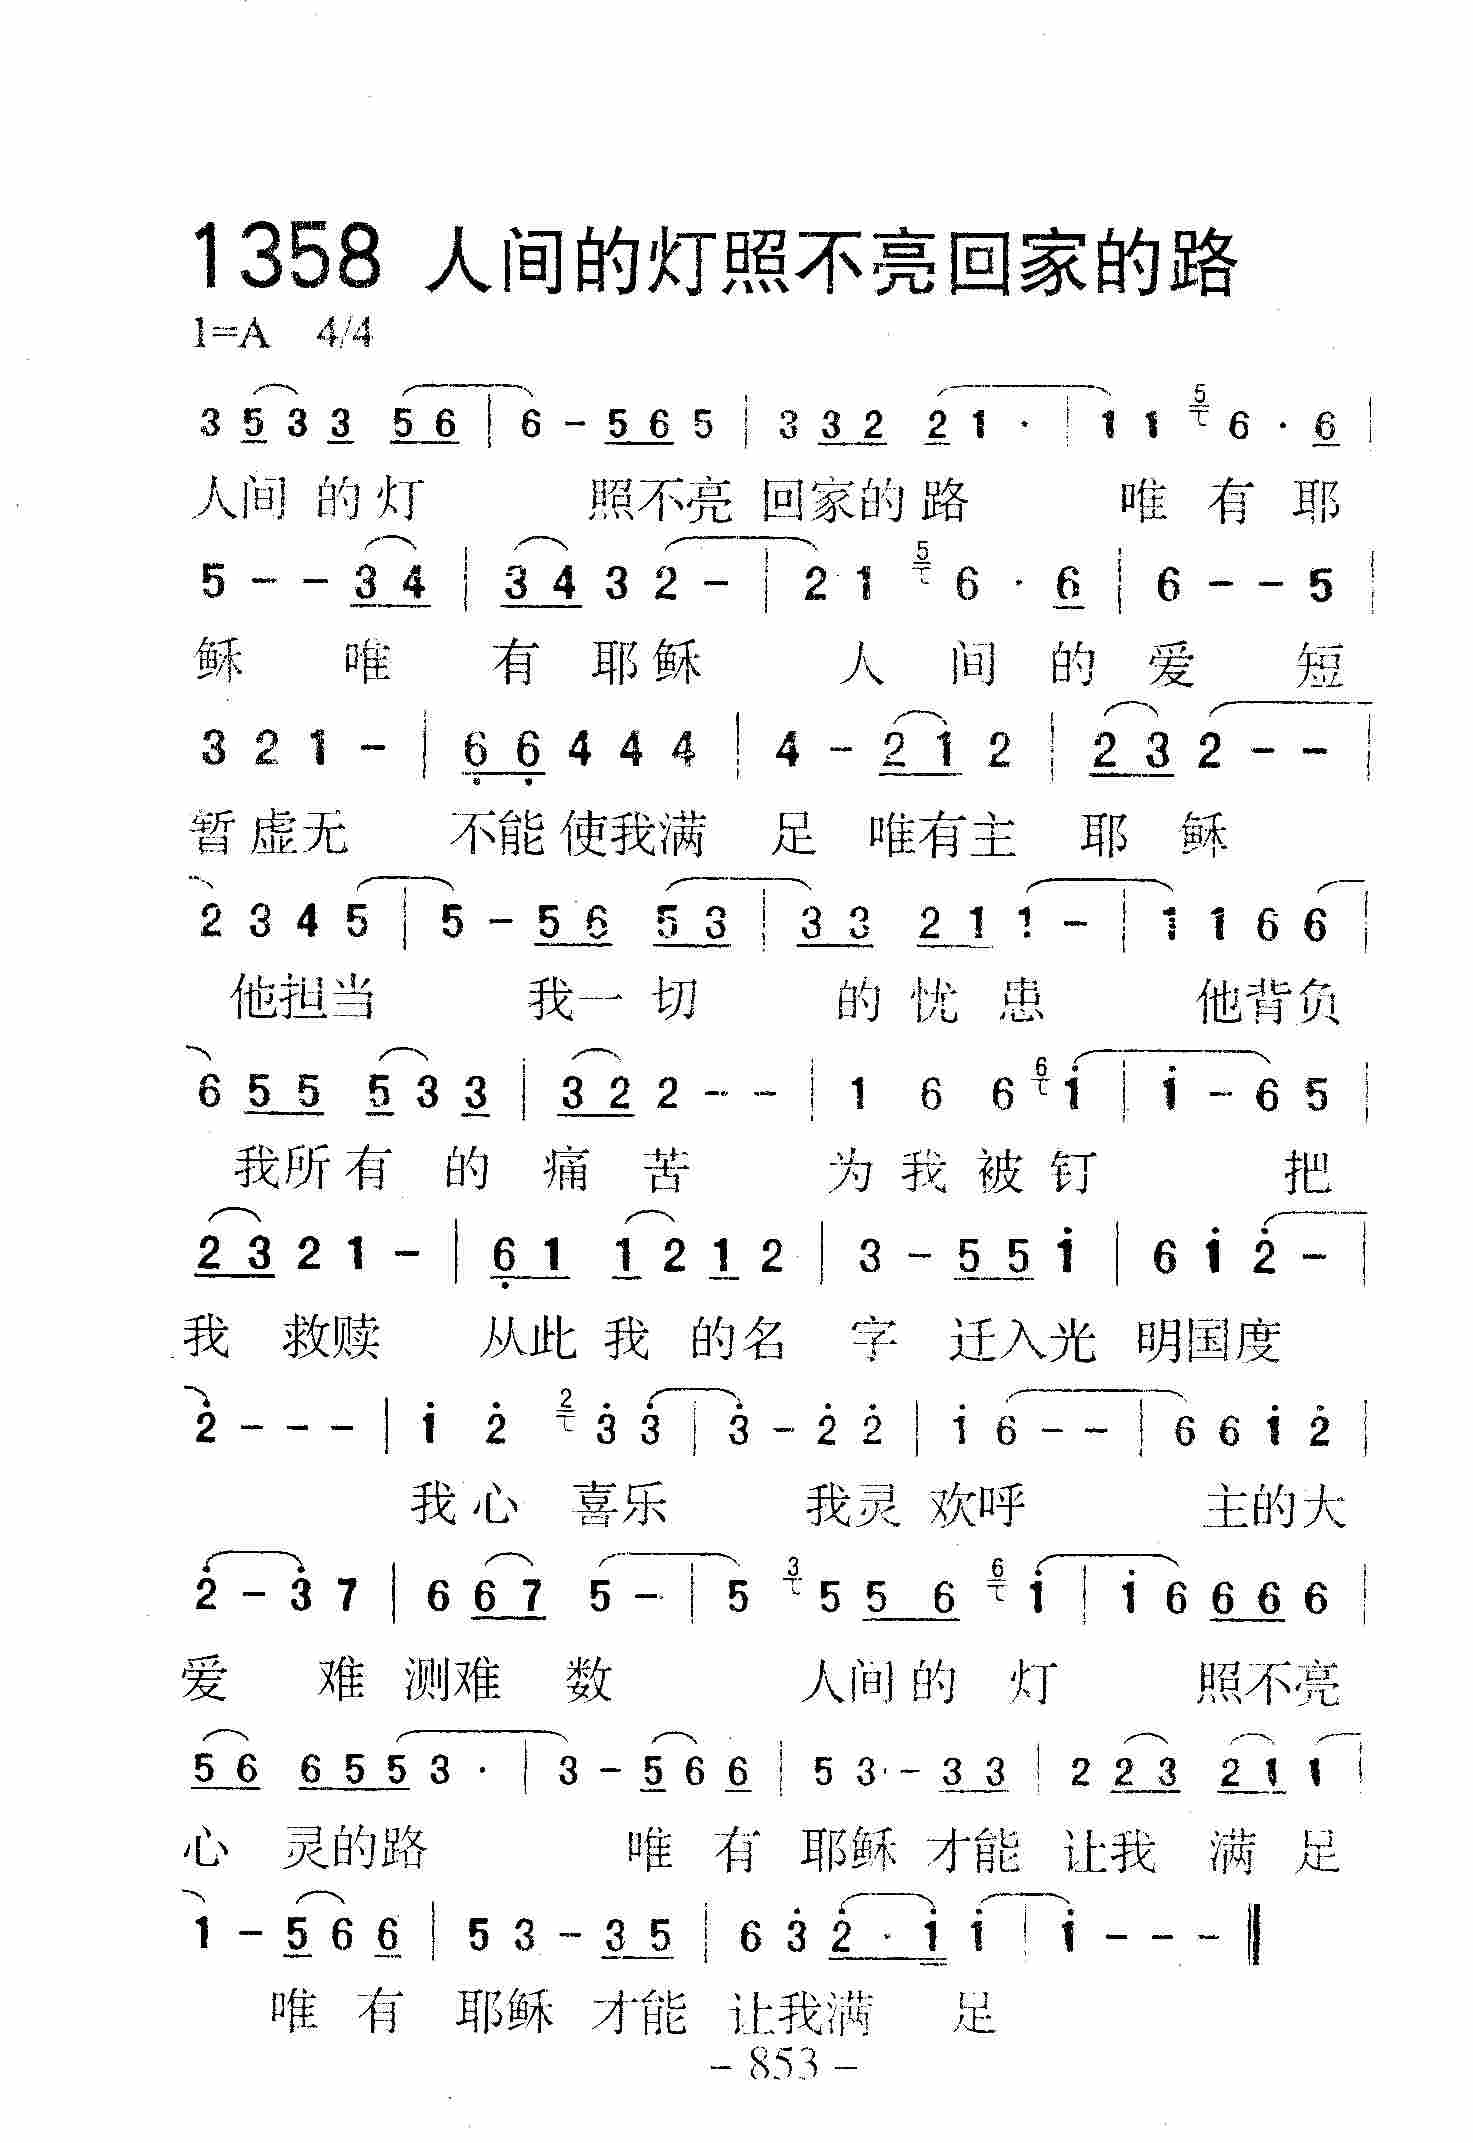 1358 人间的灯照不亮回家的路
1=A 4/4
3 5 3 3 5 6 | 6 - 5 6 5 | 3 3 2 2 1 · | 1 1 5 6 · 6 |
人间 的 灯 照不亮 回家的 路 唯 有 耶
5 - - 3 4 | 3 4 3 2 - | 2 1 5 6 · 6 | 6 - - 5 |
稣 唯 有 耶 稣 人 间 的 爱 短
3 2 1 - | 6 6 4 4 4 | 4 - 2 1 2 | 2 3 2 - - |
暂 虚无 不能 使我满 足 唯有主 耶 稣
2 3 4 5 | 5 - 5 6 5 3 | 3 3 2 1 1 - | 1 1 6 6 |
他担当 我一 切 的 忧 患 他背负
6 5 5 5 3 3 | 3 2 2 - - | 1 6 6 6 1 | 1 - 6 5 |
我所 有 的 痛 苦 为 我 被 钉 把
2 3 2 1 - | 6 1 1 2 1 2 | 3 - 5 5 1 | 6 1 2 - |
我 救赎 从此 我 的名 字 迁入光 明国度
2 - - - | 1 2 2 3 3 | 3 - 2 2 | 1 6 - - | 6 6 1 2 |
我 心 喜乐 我灵 欢呼 主的大
2 - 3 7 | 6 6 7 5 - | 5 3 5 5 6 6 1 | 1 6 6 6 6 |
爱 难 测难 数 人间 的 灯 照不亮
5 6 6 5 5 3 · | 3 - 5 6 6 | 5 3 · - 3 3 | 2 2 3 2 1 1 |
心 灵的路 唯 有 耶稣 才能 让我 满 足
1 - 5 6 6 | 5 3 - 3 5 | 6 3 2 · 1 1 | 1 - - - ‖
唯 有 耶稣 才能 让我满 足
- 853 -